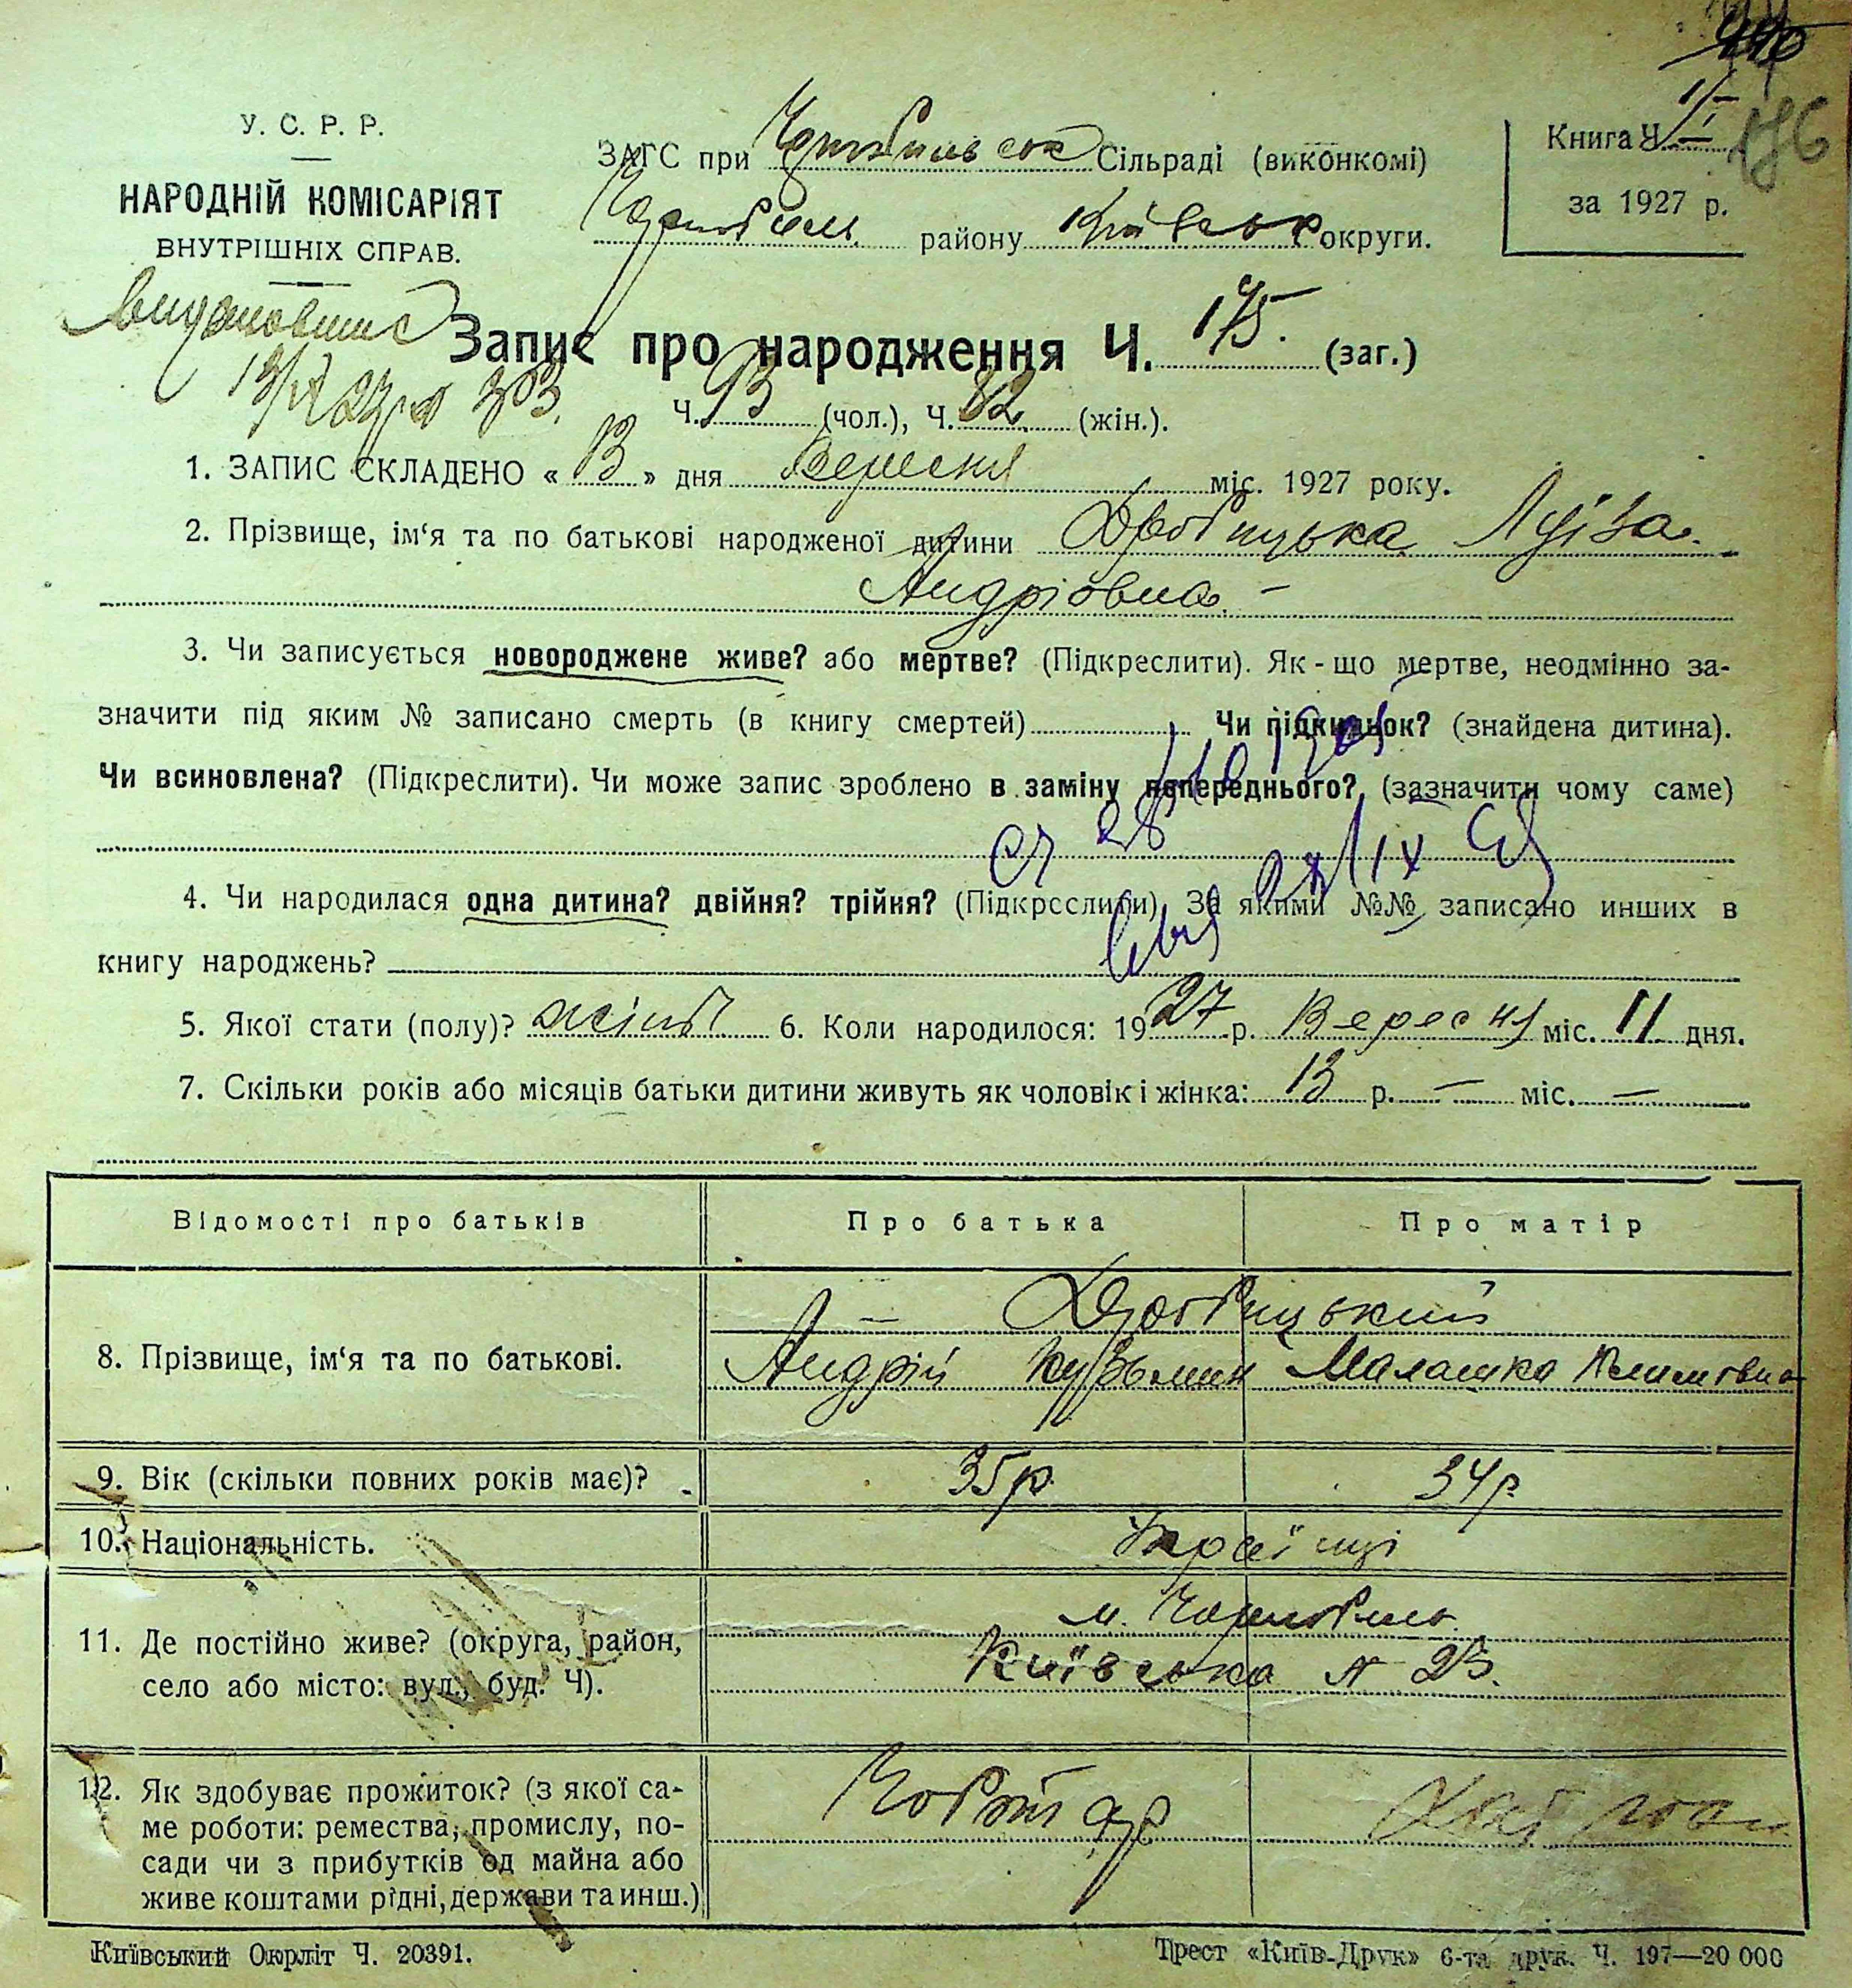 У. С. Р. Р.
НАРОДНІЙ КОМІСАРІЯТ
ВНУТРІШНІХ СПРАВ.
ЗАГС при Чорнобильськ Сільраді (виконкомі)
Чорнобиль району Київськ округи.
Книга Ч. II
за 1927 р.
176
Запис про народження Ч. 175. (заг.)
Ч. 93 (чол.), Ч. 82 (жін.).
1. ЗАПИС СКЛАДЕНО « 13 » дня Вересня міс. 1927 року.
2. Прізвище, ім‘я та по батькові народженої дитини Дробницька Луїза
Андріовна
3. Чи записується новороджене живе? або мертве? (Підкреслити). Як-що мертве, неодмінно за-
значити під яким № записано смерть (в книгу смертей) Чи підкидьок? (знайдена дитина).
Чи всиновлена? (Підкреслити). Чи може запис зроблено в заміну попереднього? (зазначити чому саме)
4. Чи народилася одна дитина? двійня? трійня? (Підкреслити) За якими №№ записано инших в
книгу народжень?
5. Якої стати (полу)? жіноч 6. Коли народилося: 1927 р. Вересня міс. 11 дня.
7. Скільки років або місяців батьки дитини живуть як чоловік і жінка: 13 р. — міс. —
Відомості про батьків Про батька Про матір
Дробницький
8. Прізвище, ім‘я та по батькові. Андрій Кузьмин Малашка Климовна
9. Вік (скільки повних років має)? 35 р. 34 р.
10. Національність. Українці
11. Де постійно живе? (округа, район,
село або місто: вул., буд. Ч).
м. Чорнобиль
Київська № 23.
12. Як здобуває прожиток? (з якої са-
ме роботи: ремества, промислу, по-
сади чи з прибутків од майна або
живе коштами рідні, держави та инш.)
Чоботар
Київський Окрліт Ч. 20391.
Трест «Київ-Друк» 6-та друк. Ч. 197—20 000